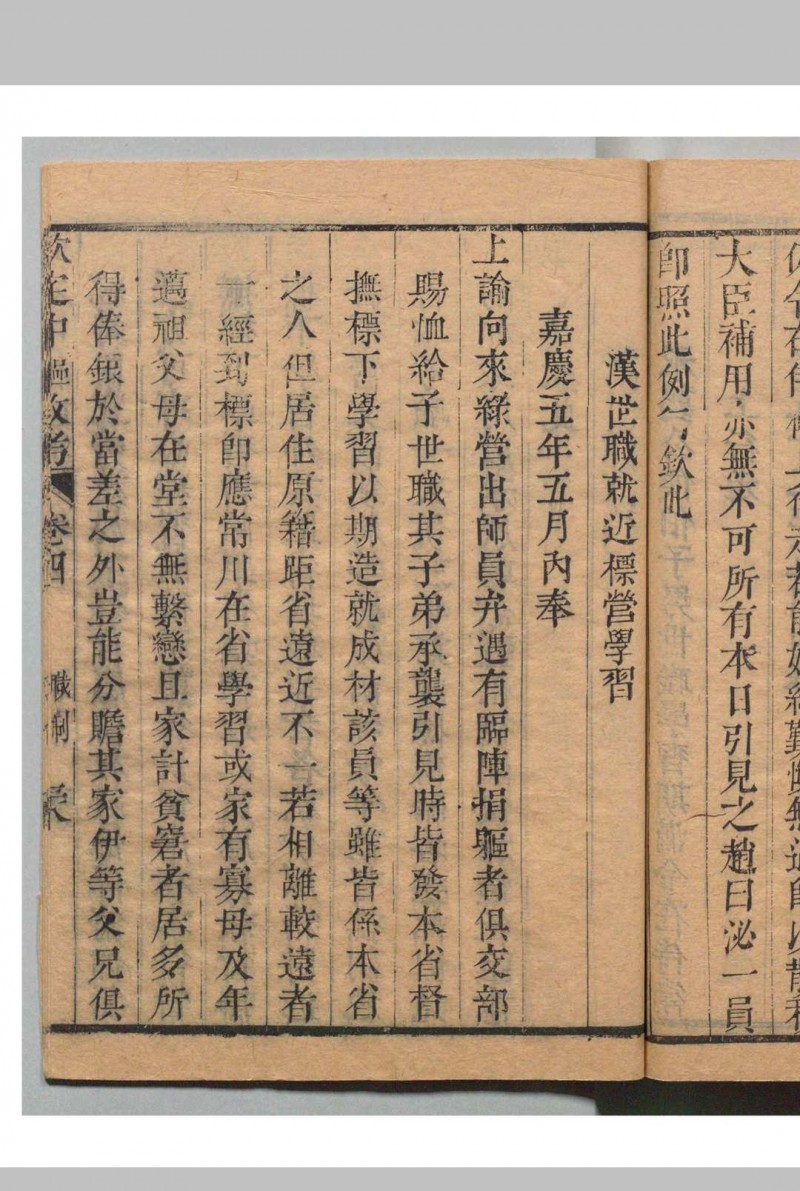 大臣補用亦無不可所有本日引見之趙曰泌一員
即照此例欽此
漢世職就近標營學習
嘉慶五年五月內奉
上諭向來綠營出師員弁遇有臨陣捐軀者俱交部
賜恤給予世職其子弟承襲引見時皆發本省督
撫標下學習以期造就成材該員等雖皆係本省
之人但居住原籍距省遠近不一若相離較遠者
一經到標即應常川在省學習或家有寡母及年
邁祖父母在堂不無繫戀且家計貧窘者居多所
得俸銀於當差之外豈能分贍其家伊等父兄俱
欽定中樞政考 卷四 職制